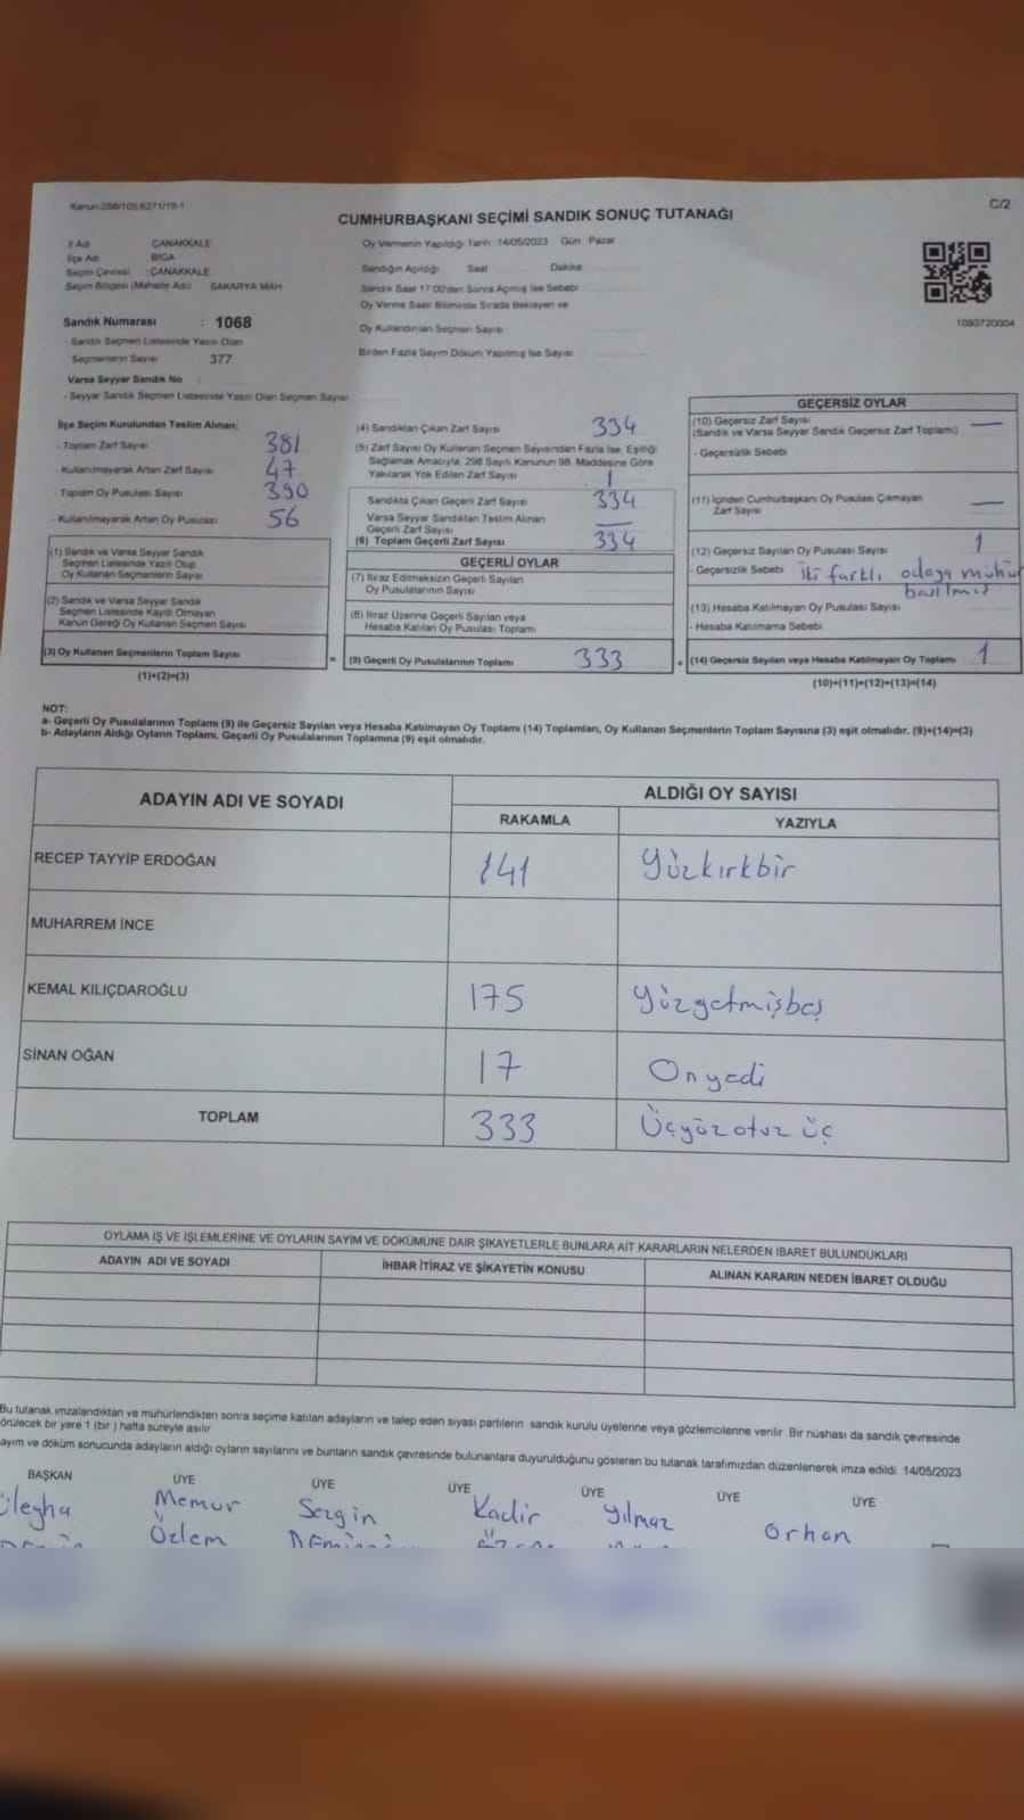 Kanun:298/105 6271/19-1
C/2
CUMHURBAŞKANI SEÇİMİ SANDIK SONUÇ TUTANAĞI
İl Adı ÇANAKKALE
İlçe Adı BİGA
Seçim Çevresi :ÇANAKKALE
Seçim Bölgesi (Mahalle Adı) SAKARYA MAH
Oy Vermenin Yapıldığı Tarih: 14/05/2023 Gün: Pazar
Sandığın Açıldığı Saat Dakika
Sandık Saat 17:00'den Sonra Açılmış İse Sebebi
Oy Verme Saati Bitiminde Sırada Bekleyen ve
Oy Kullandırılan Seçmen Sayısı
Birden Fazla Sayım Döküm Yapılmış İse Sayısı
1080720004
Sandık Numarası : 1068
- Sandık Seçmen Listesinde Yazılı Olan
Seçmenlerin Sayısı 377
Varsa Seyyar Sandık No
- Seyyar Sandık Seçmen Listesinde Yazılı Olan Seçmen Sayısı
İlçe Seçim Kurulundan Teslim Alınan;
- Toplam Zarf Sayısı 381
- Kullanılmayarak Artan Zarf Sayısı 47
- Toplam Oy Pusulası Sayısı 390
- Kullanılmayarak Artan Oy Pusulası 56
(1) Sandık ve Varsa Seyyar Sandık
Seçmen Listesinde Yazılı Olup
Oy Kullanan Seçmenlerin Sayısı
(2) Sandık ve Varsa Seyyar Sandık
Seçmen Listesinde Kayıtlı Olmayan
Kanun Gereği Oy Kullanan Seçmen Sayısı
(3) Oy Kullanan Seçmenlerin Toplam Sayısı
(1)+(2)=(3)
(4) Sandıktan Çıkan Zarf Sayısı 334
(5) Zarf Sayısı Oy Kullanan Seçmen Sayısından Fazla İse, Eşitliği
Sağlamak Amacıyla, 298 Sayılı Kanunun 98. Maddesine Göre
Yakılarak Yok Edilen Zarf Sayısı
Sandıkta Çıkan Geçerli Zarf Sayısı 334
Varsa Seyyar Sandıktan Teslim Alınan
Geçerli Zarf Sayısı —
(6) Toplam Geçerli Zarf Sayısı 334
GEÇERLİ OYLAR
(7) İtiraz Edilmeksizin Geçerli Sayılan
Oy Pusulalarının Sayısı
(8) İtiraz Üzerine Geçerli Sayılan veya
Hesaba Katılan Oy Pusulası Toplamı
= (9) Geçerli Oy Pusulalarının Toplamı 333
GEÇERSİZ OYLAR
(10) Geçersiz Zarf Sayısı —
(Sandık ve Varsa Seyyar Sandık Geçersiz Zarf Toplamı)
- Geçersizlik Sebebi
(11) İçinden Cumhurbaşkanı Oy Pusulası Çıkmayan —
Zarf Sayısı
(12) Geçersiz Sayılan Oy Pusulası Sayısı 1
- Geçersizlik Sebebi iki farklı adaya mühür
basılmış
(13) Hesaba Katılmayan Oy Pusulası Sayısı
- Hesaba Katılmama Sebebi
+ (14) Geçersiz Sayılan veya Hesaba Katılmayan Oy Toplamı 1
(10)+(11)+(12)+(13)=(14)
NOT:
a- Geçerli Oy Pusulalarının Toplamı (9) ile Geçersiz Sayılan veya Hesaba Katılmayan Oy Toplamı (14) Toplamları, Oy Kullanan Seçmenlerin Toplam Sayısına (3) eşit olmalıdır. (9)+(14)=(3)
b- Adayların Aldığı Oyların Toplamı, Geçerli Oy Pusulalarının Toplamına (9) eşit olmalıdır.
ADAYIN ADI VE SOYADI
ALDIĞI OY SAYISI
RAKAMLA YAZIYLA
RECEP TAYYİP ERDOĞAN 141 Yüzkırkbir
MUHARREM İNCE
KEMAL KILIÇDAROĞLU 175 Yüzyetmişbeş
SİNAN OĞAN 17 Onyedi
TOPLAM 333 Üçyüzotuz üç
OYLAMA İŞ VE İŞLEMLERİNE VE OYLARIN SAYIM VE DÖKÜMÜNE DAİR ŞİKAYETLERLE BUNLARA AİT KARARLARIN NELERDEN İBARET BULUNDUKLARI
ADAYIN ADI VE SOYADI İHBAR İTİRAZ VE ŞİKAYETİN KONUSU ALINAN KARARIN NEDEN İBARET OLDUĞU
Bu tutanak imzalandıktan ve mühürlendikten sonra seçime katılan adayların ve talep eden siyasi partilerin sandık kurulu üyelerine veya gözlemcilerine verilir. Bir nüshası da sandık çevresinde
örülecek bir yere 1 (bir) hafta süreyle asılır
ayım ve döküm sonucunda adayların aldığı oyların sayılarını ve bunların sandık çevresinde bulunanlara duyurulduğunu gösteren bu tutanak tarafımızdan düzenlenerek imza edildi. 14/05/2023
BAŞKAN ÜYE ÜYE ÜYE ÜYE ÜYE ÜYE
Memur Sezgin Kadir Yılmaz Orhan
Özlem